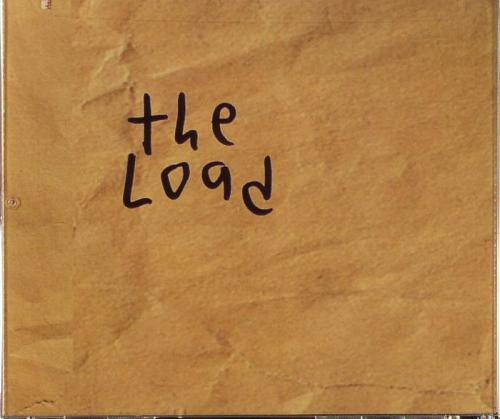 the
Load